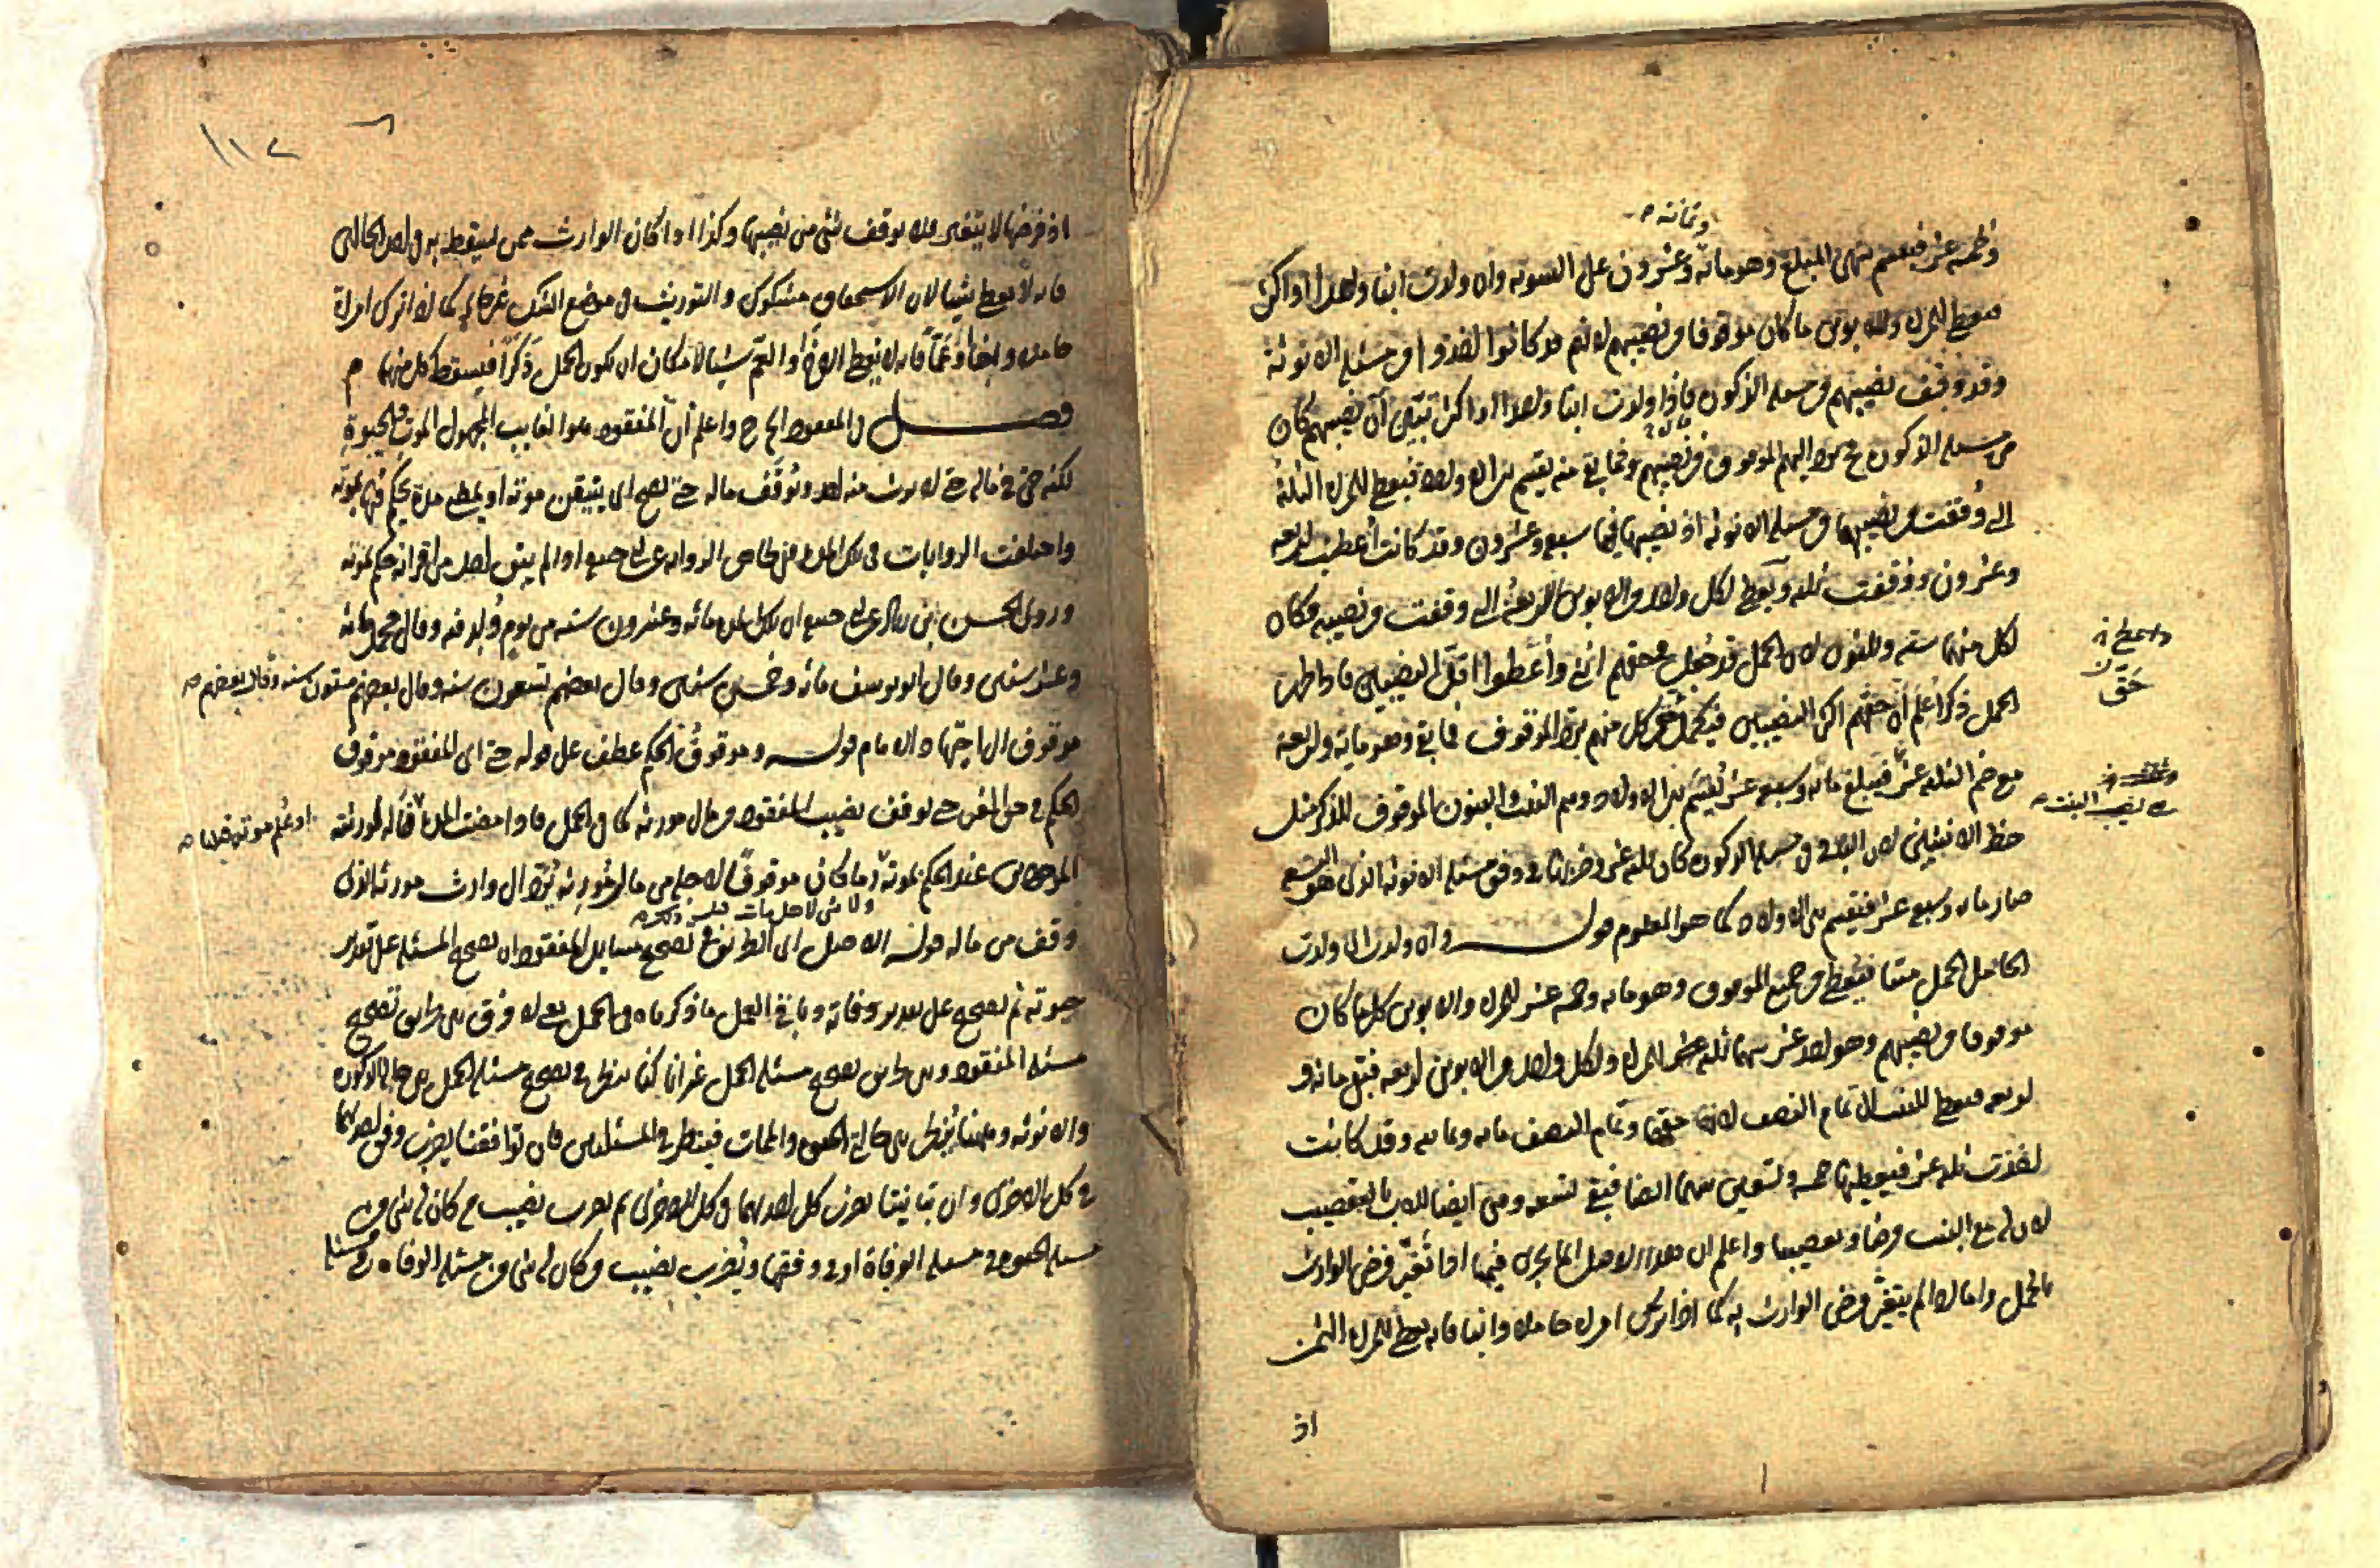 وخمسة عشر فيقسم بينهما المبلغ وهو مائة وعشرون على السوية وان ولدت ابنا واحدا او اكثر
وثمانية
فيعطى للمراة وللابوين ما كان موقوفا من نصيبهم لانهم قد كانوا اخذوا من مسئلة الانوثة
وقد وقف نصيبهم من مسئلة الذكورة فاذا ولدت ابنا واحدا او اكثر تبين ان نصيبهم كان
من مسئلة الذكورة اليهم الموقوف من نصيبهم وما بقي منه يقسم بين الاولاد فيعطى للمراة الثلثة
التي وقفت من نصيبها من مسئلة الانوثة اذ نصيبها سبعة وعشرون وقد كانت اعطيت اربعة
وعشرون ووقفت ثلثة ويعطى لكل واحد من الابوين الاربعة التي وقفت من نصيبه فكان
لكل منهما ستة وثلثون لان الحمل قد جعل في حقهم انثى واعطوا اقل النصيبين فاذا ظهر
الحمل ذكرا علم ان حقهم اكثر النصيبين فيكمل حق كل منهم من الموقوف فما بقي وهو مائة واربعة
مع ضم الثلثة عشر فيبلغ مائة وسبعة عشر يقسم بين الاولاد وهم البنت والبنون الموقوف للذكر مثل
حظ الانثيين لان الباقي من مسئلة الذكورة كان ثلثة عشر وضربناها في وفق مسئلة الانوثة الذي هو التسع
صار مائة وسبعة عشر فيقسم بين الاولاد كما هو المعلوم قوله وان ولدت اي ولدت
الحامل الحمل ميتا فيعطى من جميع الموقوف وهو مائة وخمسة عشر للمراة والابوين كل ما كان
موقوفا من نصيبهم وهو احد عشر سهما ثلثة للمراة ولكل واحد من الابوين اربعة فبقي مائة و
اربعة فيعطى للبنت الى تمام النصف لانه حقها وتمام النصف مائة وثمانية وقد كانت
اخذت ثلثة عشر فيعطيها خمسة وتسعين سهما ايضا فبقي تسعة وهي ايضا للاب بالتعصيب
لان له مع البنت فرضا وتعصيبا واعلم ان هذا الاصل انما يجري فيما اذا تغير فرض الوارث
بالحمل واما اذا لم يتغير فرض الوارث به كما اذا ترك امراة حاملة وابنا فانه يعطى للمراة الثمن
واعطى
حق
نصيب البنت
اذ
١١٢
اذ فرضها لا يتغير فلا يوقف شيء من نصيبها وكذا اذا كان الوارث ممن يسقط به في احد الحالين
فانه لا يعطى شيئا لان الاستحقاق مشكوك والتوريث في موضع الشك غير جائز كما اذا ترك امراة
حاملة واخا او عما فانه لا يعطى الاخ او العم شيئا لامكان ان يكون الحمل ذكرا فيسقط كل منهما
فصل في المفقود واعلم ان المفقود هو الغايب المجهول الموت والحيوة
لكنه حي في ماله حتى لا يرث منه احد ويوقف ماله حتى يصح اي يتيقن موته او يمضي مدة يحكم فيها بموته
واختلفت الروايات في تلك المدة ففي ظاهر الرواية عن ابي حنيفة اذا لم يبق احد من اقرانه حكم بموته
وروى الحسن بن زياد عن ابي حنيفة ان تلك المدة مائة وعشرون سنة من يوم ولد فيه وقال محمد مائة
وعشر سنين وقال ابو يوسف مائة وخمس سنين وقال بعضهم تسعون سنة وقال بعضهم ستون سنة وقال بعضهم
موقوف الى اجتهاد الامام قوله وموقوف الحكم عطف على قوله حي اي المفقود موقوف
الحكم في حق الغير حتى يوقف نصيب المفقود من مال مورثه كما في الحمل فاذا مضت المدة فماله لورثته
او علم موته
الموجودين عند الحكم بموته وما كان موقوفا لاجله من مال مورثه يرد الى وارث مورثه الذي
وقف من ماله قوله الاصل اي الطريق في تصحيح مسايل المفقود ان تصحح المسئلة على تقدير
حيوته ثم تصحح على تقدير وفاته وباقي العمل ما ذكرناه في الحمل يعني لا فرق بين تصحيح
مسئلة المفقود وبين تصحيح مسئلة الحمل غير انا كنا ننظر في تصحيح مسئلة الحمل بين حالتي الذكورة
والانوثة وههنا ينظر بين حالتي الحيوة والممات فينظر في المسئلتين فان توافقتا يضرب وفق احدهما
في كل الاخرى وان تباينتا يضرب كل احديهما في كل الاخرى ثم يضرب نصيب من كان له شيء من
مسئلة الحيوة في مسئلة الوفاة او في وفقها ويضرب نصيب من كان له شيء من مسئلة الوفاة في مسئلة